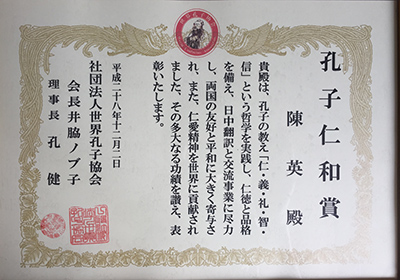 孔子仁和賞
陳英殿
貴殿は、孔子の教え「仁・義・礼・智・
信」という哲学を実践し、仁徳と品格
を備え、日中翻訳と交流事業に尽力
し、両国の友好と平和に大きく寄与さ
れ、また、仁愛精神を世界に貢献され
ました、その多大なる功績を讃え、表
彰いたします。
平成二十八年十二月二日
社団法人世界孔子協会
会長井脇ノブ子
理事長 孔健